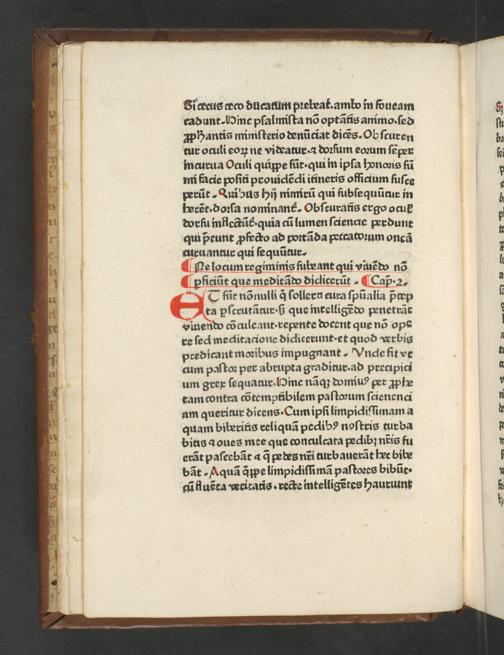 Si cecus ceco ducatum prebeat. ambo in foueam
cadunt. Hinc psalmista nō optātis animo. sed
ꝓph̄antis ministerio denūciat dicēs. Obscuren
tur oculi eoꝝ ne videātur. ⁊ dorsum eorum sēper
incurua Oculi quippe sūt. qui in ipsa honoris sū
mi facie positi prouidēdi itineris officium susce
perūt. Quibus hij nimirū qui subsequūtur in
herēt. dorsa nominātᷣ. Obscuratis ergo oculꝭ
dorsū inflectitᷣ. quia cū lumen sciencie perdunt
qui p̄eunt ꝓfecto ad portāda peccatorum onera
curuantur qui sequūtur.
¶ Ne locum regiminis subeant qui viuēdo nō
ꝑficiūt que meditādo didicerūt. ¶ Cap. 2.
ET sūt nōnulli q̄ sollerti cura spūalia p̄cep
ta ꝑscrutātur. sꝫ que intelligēdo penetrāt
viuendo cōculcant. repente docent que nō ope
re sed meditacione didicerunt. et quod verbis
predicant moribus impugnant. Vnde fit vt
cum pastor per abrupta graditur. ad precipici
um grex sequatur. Hinc nāqꝫ domiuꝰ per ꝓphe
tam contra cōtemptibilem pastorum scienciā
am queritur dicens. Cum ipsi limpidissimam a
quam biberitis reliquā pedibꝰ vestris turba
bitis ⁊ oues mee que conculcata pedibꝫ vr̄is fu
erāt pascebāt ⁊ q̄ pedes vr̄i turbauerāt hec bibe
bāt. Aquā q̄ppe limpidissimā pastores bibūt.
cū fluēta veritatis. recte intelligētes hauriunt